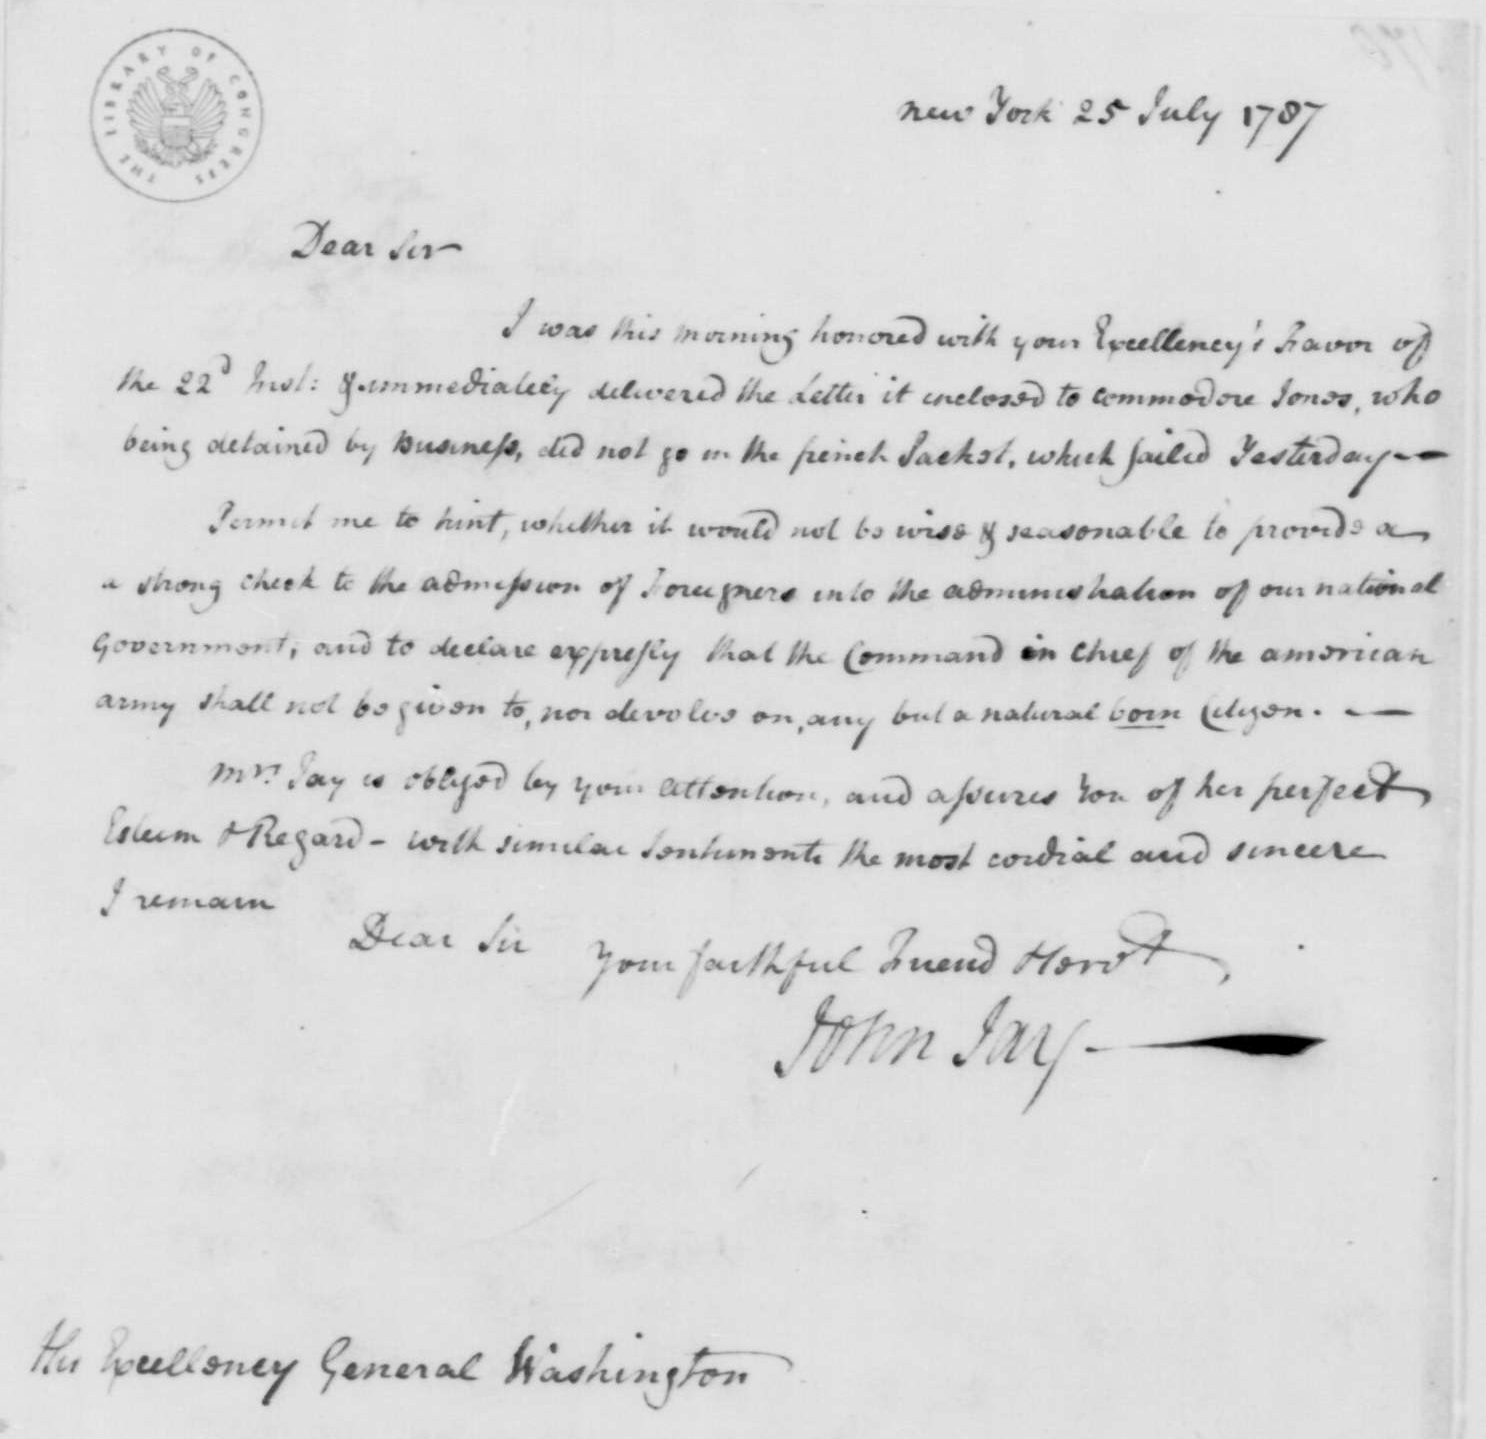 THE LIBRARY OF CONGRESS
new York 25 July 1787
Dear Sir
I was this morning honored with your Excellency's Favor of
the 22d Inst: & immediately delivered the Letter it enclosed to commodore Jones, who
being detained by Business, did not go in the french Packet, which sailed Yesterday —
Permit me to hint, whether it would not be wise & seasonable to provide a
a strong check to the admission of Foreigners into the administration of our national
Government; and to declare expressly that the Command in chief of the american
army shall not be given to, nor devolve on, any but a natural born Citizen. —
Mrs. Jay is obliged by your attention, and assures You of her perfect
Esteem & Regard - with similar Sentiments the most cordial and sincere
I remain
Dear Sir Your faithful Friend & Servt
John Jay —
His Excellency General Washington